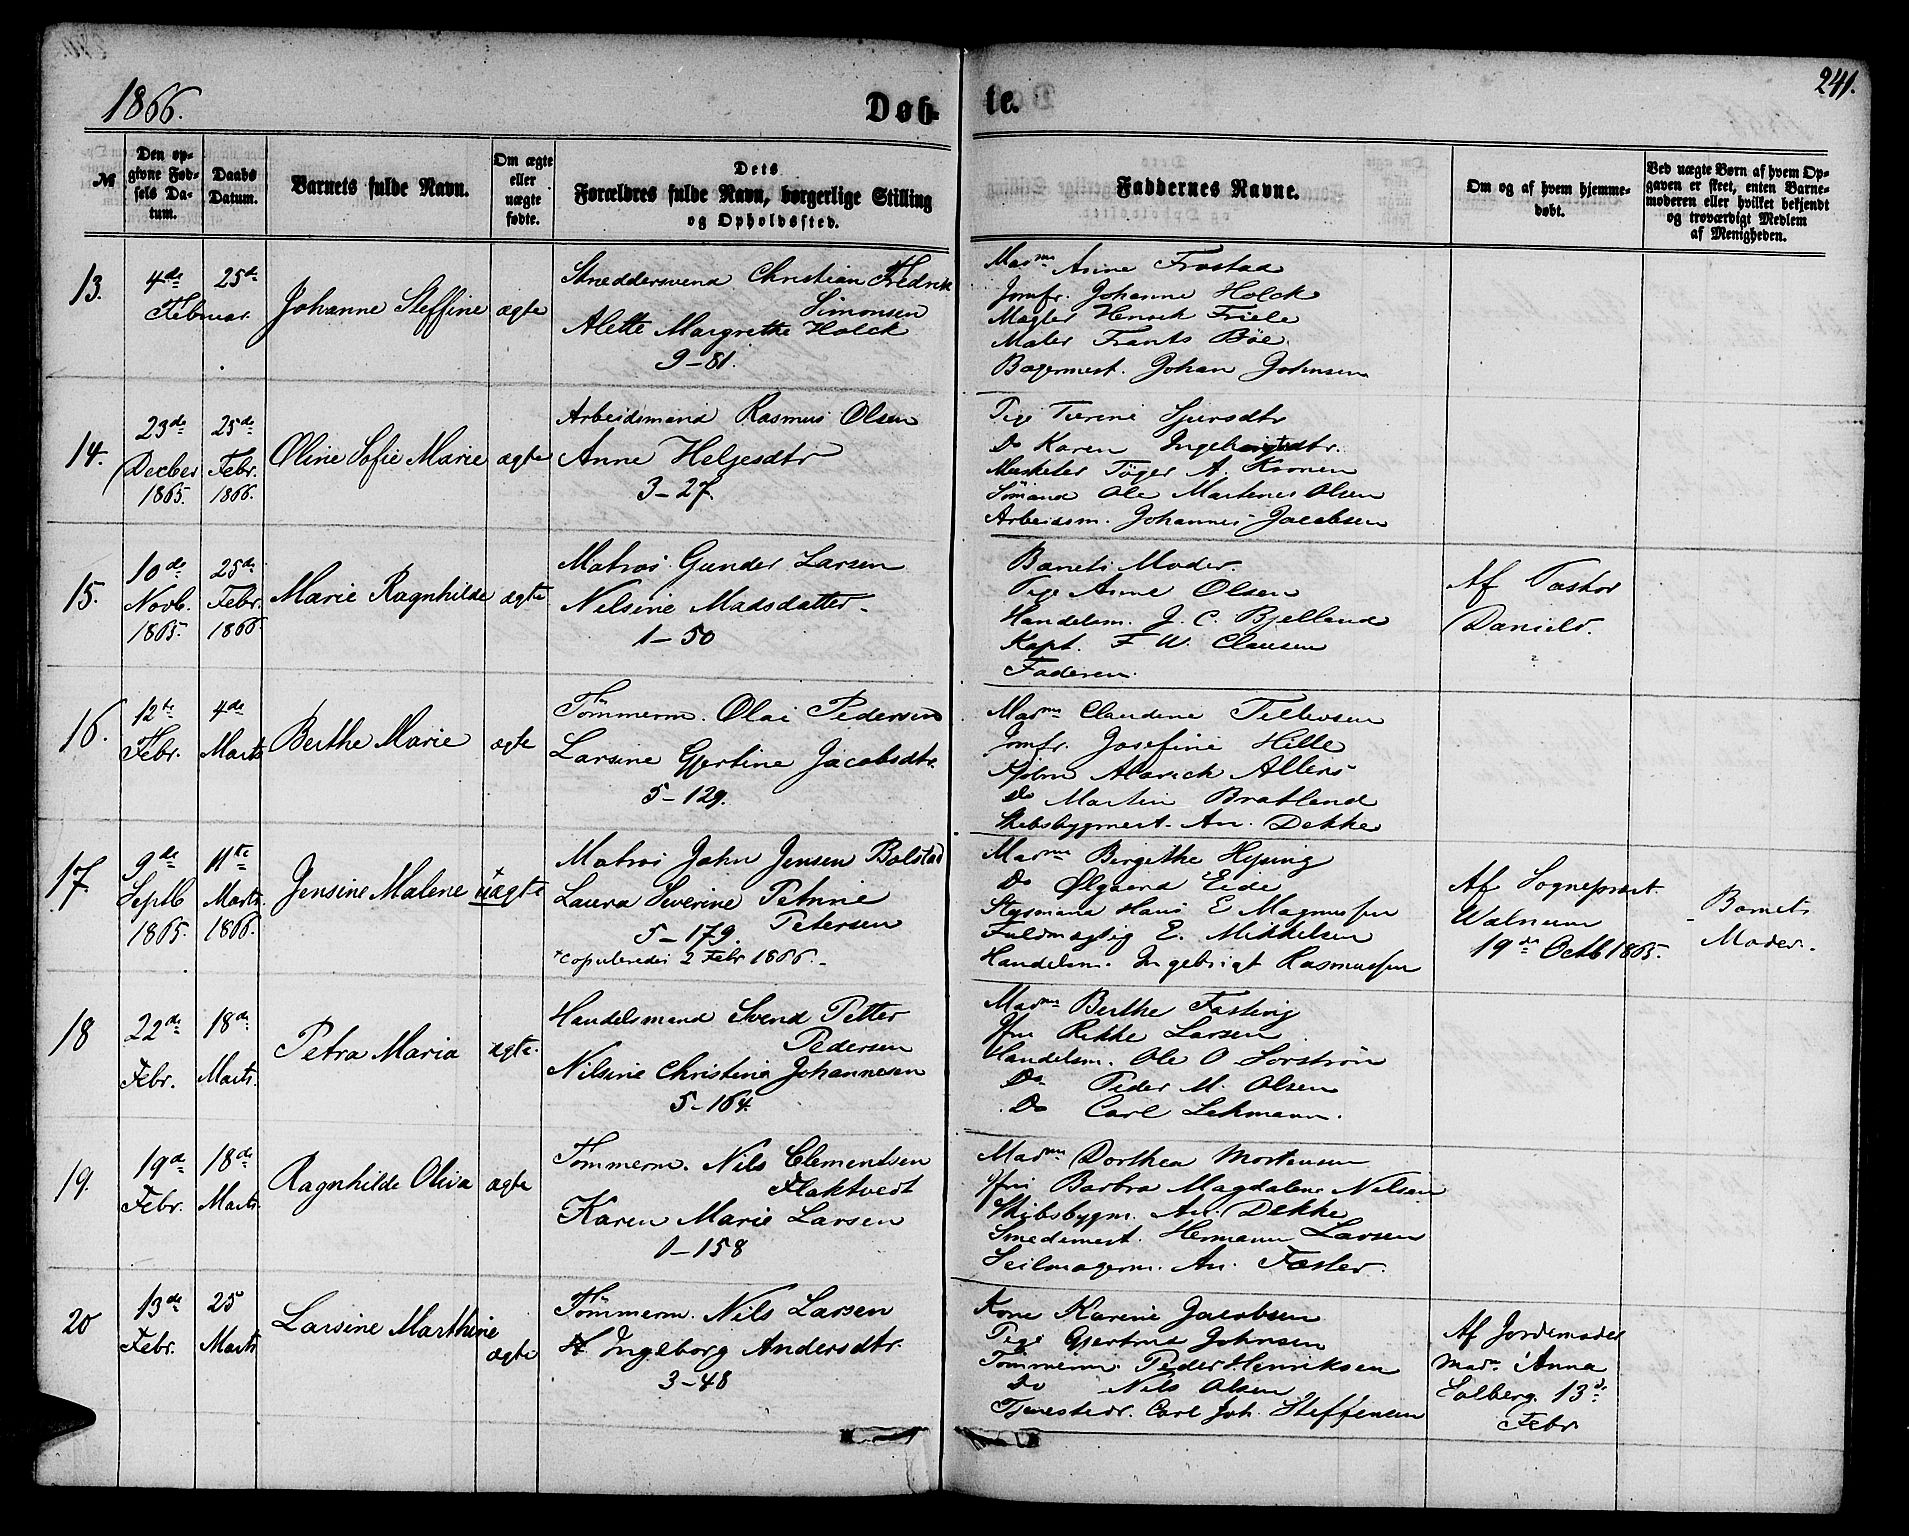 1866.
Døb-
te.
241.
№
Den op-
givne Fød-
sels Da-
tum.
Daabs
Datum.
Barnets fulde Navn.
Om ægte
eller
uægte
fødte.
Dets
Forældres fulde Navn, borgerlige Stilling
og Opholdssted.
Faddernes Navne.
Om og af hvem hjemme-
døbt.
Ved uægte Børn af hvem Op-
gaven er skeet, enten Barne-
moderen eller hvilket bekjendt
og troværdigt Medlem
af Menigheden.
13.
4de
25de
Februar.
Johanne Steffine
ægte
Skreddersvend Christian Fredrik
Simonsen
Alette Margrethe Holck
9-81.
Madme Anne Frostad
Jomfr. Johanne Holck
Mægler Henrik Friele
Maler Frants Bøe.
Bagermest. Johan Johnsen
14.
23de
Decber
1865.
25de
Febr.
1866.
Oline Sofie Marie
ægte
Arbeidsmand Rasmus Olsen
Anne Heljesdtr
3-27.
Pige Turine Sjursdtr
Do Karen Ingebrigtsdtr.
Musketer Tøger A. Kronen
Sømand Ole Martenes Olsen
Arbeidsm. Johannes Jacobsen
15.
10de
Novb.
1865.
25de
Febr.
1866.
Marie Ragnhilde
ægte
Matros Gunder Larsen
Nilsine Madsdatter
1-50
Barnets Moder.
Pige Anne Olsen
Handelsm. J. C. Bjelland
Kapt. F. W. Clausen
Faderen.
Af Pastor
Daniels.
16.
12te
Febr.
4de
Marts
Berthe Marie
ægte
Tømmerm. Olai Pedersen
Larsine Gjertine Jacobsdtr.
5-129.
Madme Claudine Tellevsen
Jomfr. Josefine Hille
Kjøbm Alarick Allers
Do Martin Bratland
Skibsbygmest. An. Dekke
17.
9de
Septb
1865.
11te
Marts.
1866.
Jensine Malene
+uægte
Matros John Jensen Bolstad
Laura Severine Petrine
Petersen
5-179.
+copulerede 2 Febr 1866.
Madme Birgethe Hysing
Do Ølgaard Eide
Styrmand Hans E Magnussen
Fuldmægtig E. Mikkelsen
Handelsm. Ingebrigt Rasmussen
Af Sognepræst.
Walnum
19de Octb 1865.
Barnets
Moder.
18
22de
Febr.
18de
Marts.
Petra Maria
ægte.
Handelsmand Svend Petter
Pedersen
Nilsine Christine Johannesen
5-164.
Madme Berthe Fasting
Jfru Rikke Larsen
Handelsm. Ole O Sorstrøn
Do Peder M. Olsen
Do Carl Lehmann.
19.
19de
Febr.
18de
Marts.
Ragnhilde Oliva
ægte
Tømmerm. Nils Clementsen
Flaktvedt
Karen Marie Larsen
1-158
Madme Dorthea Mortensen
Jfru Barbra Magdalene Nilsen
Skibsbygm. An. Dekke
Smedemest. Hermann Larsen
Seilmagerm. An. Fæster.
20
13de
Febr.
25
Marts
Larsine Marthine
ægte
Tømmerm. Nils Larsen
Ingeborg Andersdtr.
3-48
Kone Karine Jacobsen
Pige Gjertine Johnsen
Tømmerm. Peder Henriksen
Do Nils Olsen
Tjenestedr. Carl Joh. Steffensen
Af Jordemoder
Madm. Anna
Solberg 13de
Febr